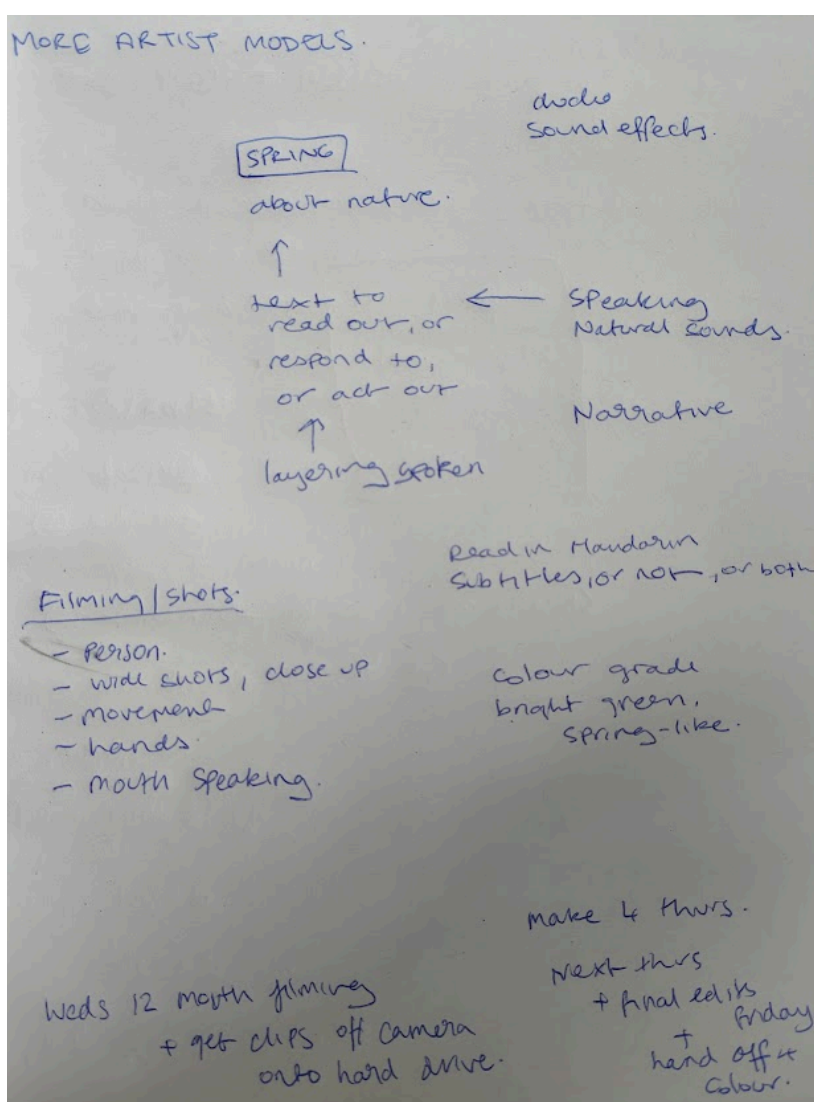 MORE ARTIST MODELS.
audio
sound effects.
SPRING
about nature.
text to
read out, or
respond to,
or act out
Speaking
Natural sounds.
Narrative
layering spoken
Read in Mandarin
Subtitles, or not, or both
Filming/shots.
- Person.
- wide shots, close up
- movement
- hands.
- mouth speaking.
colour grade
bright green,
spring-like.
make 4 thurs.
Next thurs
+ final edits
friday
+
hand off 4
colour.
Weds 12 mouth filming
+ get clips off camera
onto hard drive.